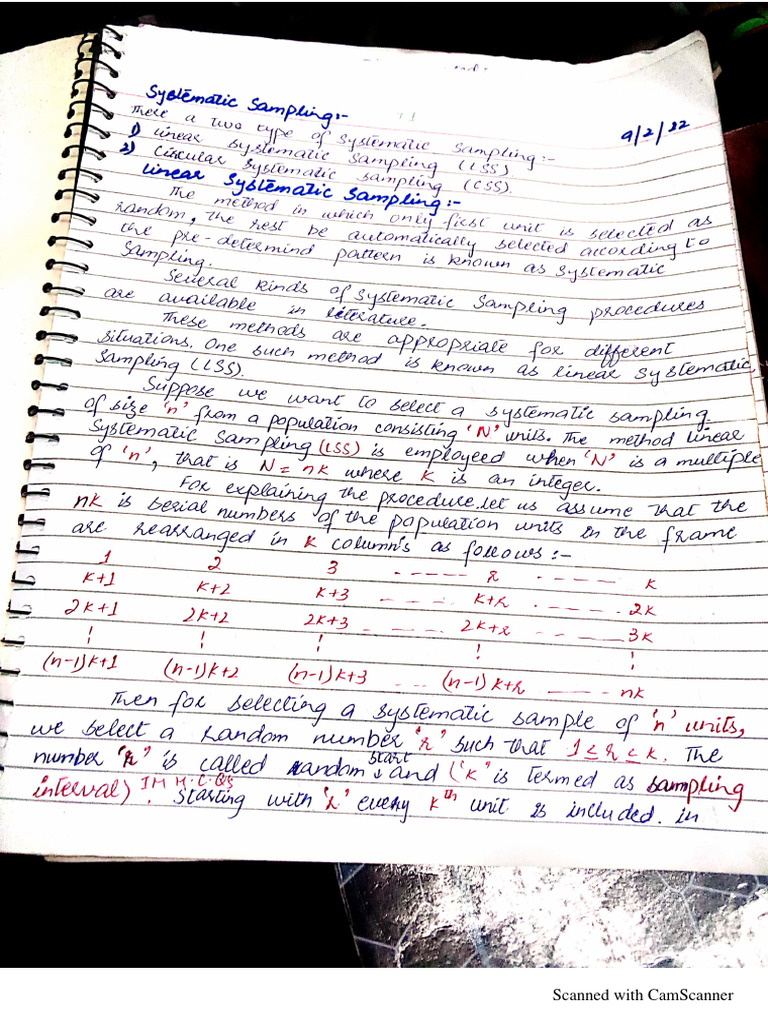 Systematic Sampling:-
9/2/22
There a two type of Systematic Sampling:-
1) Linear Systematic Sampling (LSS)
2) Circular Systematic Sampling (CSS)
Linear Systematic Sampling:-
The method in which only first unit is selected as
random, the rest be automatically selected according to
the pre-determind pattern is known as systematic
Sampling.
Several kinds of Systematic Sampling procedures
are available in literature.
These methods are appropriate for different
situations. One such method is known as linear Systematic
Sampling (LSS).
Suppose we want to select a systematic sampling
of size 'n' from a population consisting 'N' units. The method linear
Systematic Sampling (LSS) is employeed when 'N' is a multiple
of 'n', that is N = nk where K is an integer.
For explaining the procedure let us assume that the
nk is serial numbers of the population units in the frame
are rearranged in K column's as follows:-
1 2 3 ----- r ----- k
k+1 k+2 k+3 ----- k+r ----- 2k
2k+1 2k+2 2k+3 ----- 2k+r ----- 3k
(n-1)k+1 (n-1)k+2 (n-1)k+3 ----- (n-1)k+r ----- nk
Then for selecting a systematic sample of 'n' units,
we select a random number 'r' such that 1 ≤ r ≤ k. The
number 'r' is called random start and ('k' is termed as sampling
interval) IM M.C.Q's. Starting with 'r' every kth unit is included. in
Scanned with CamScanner